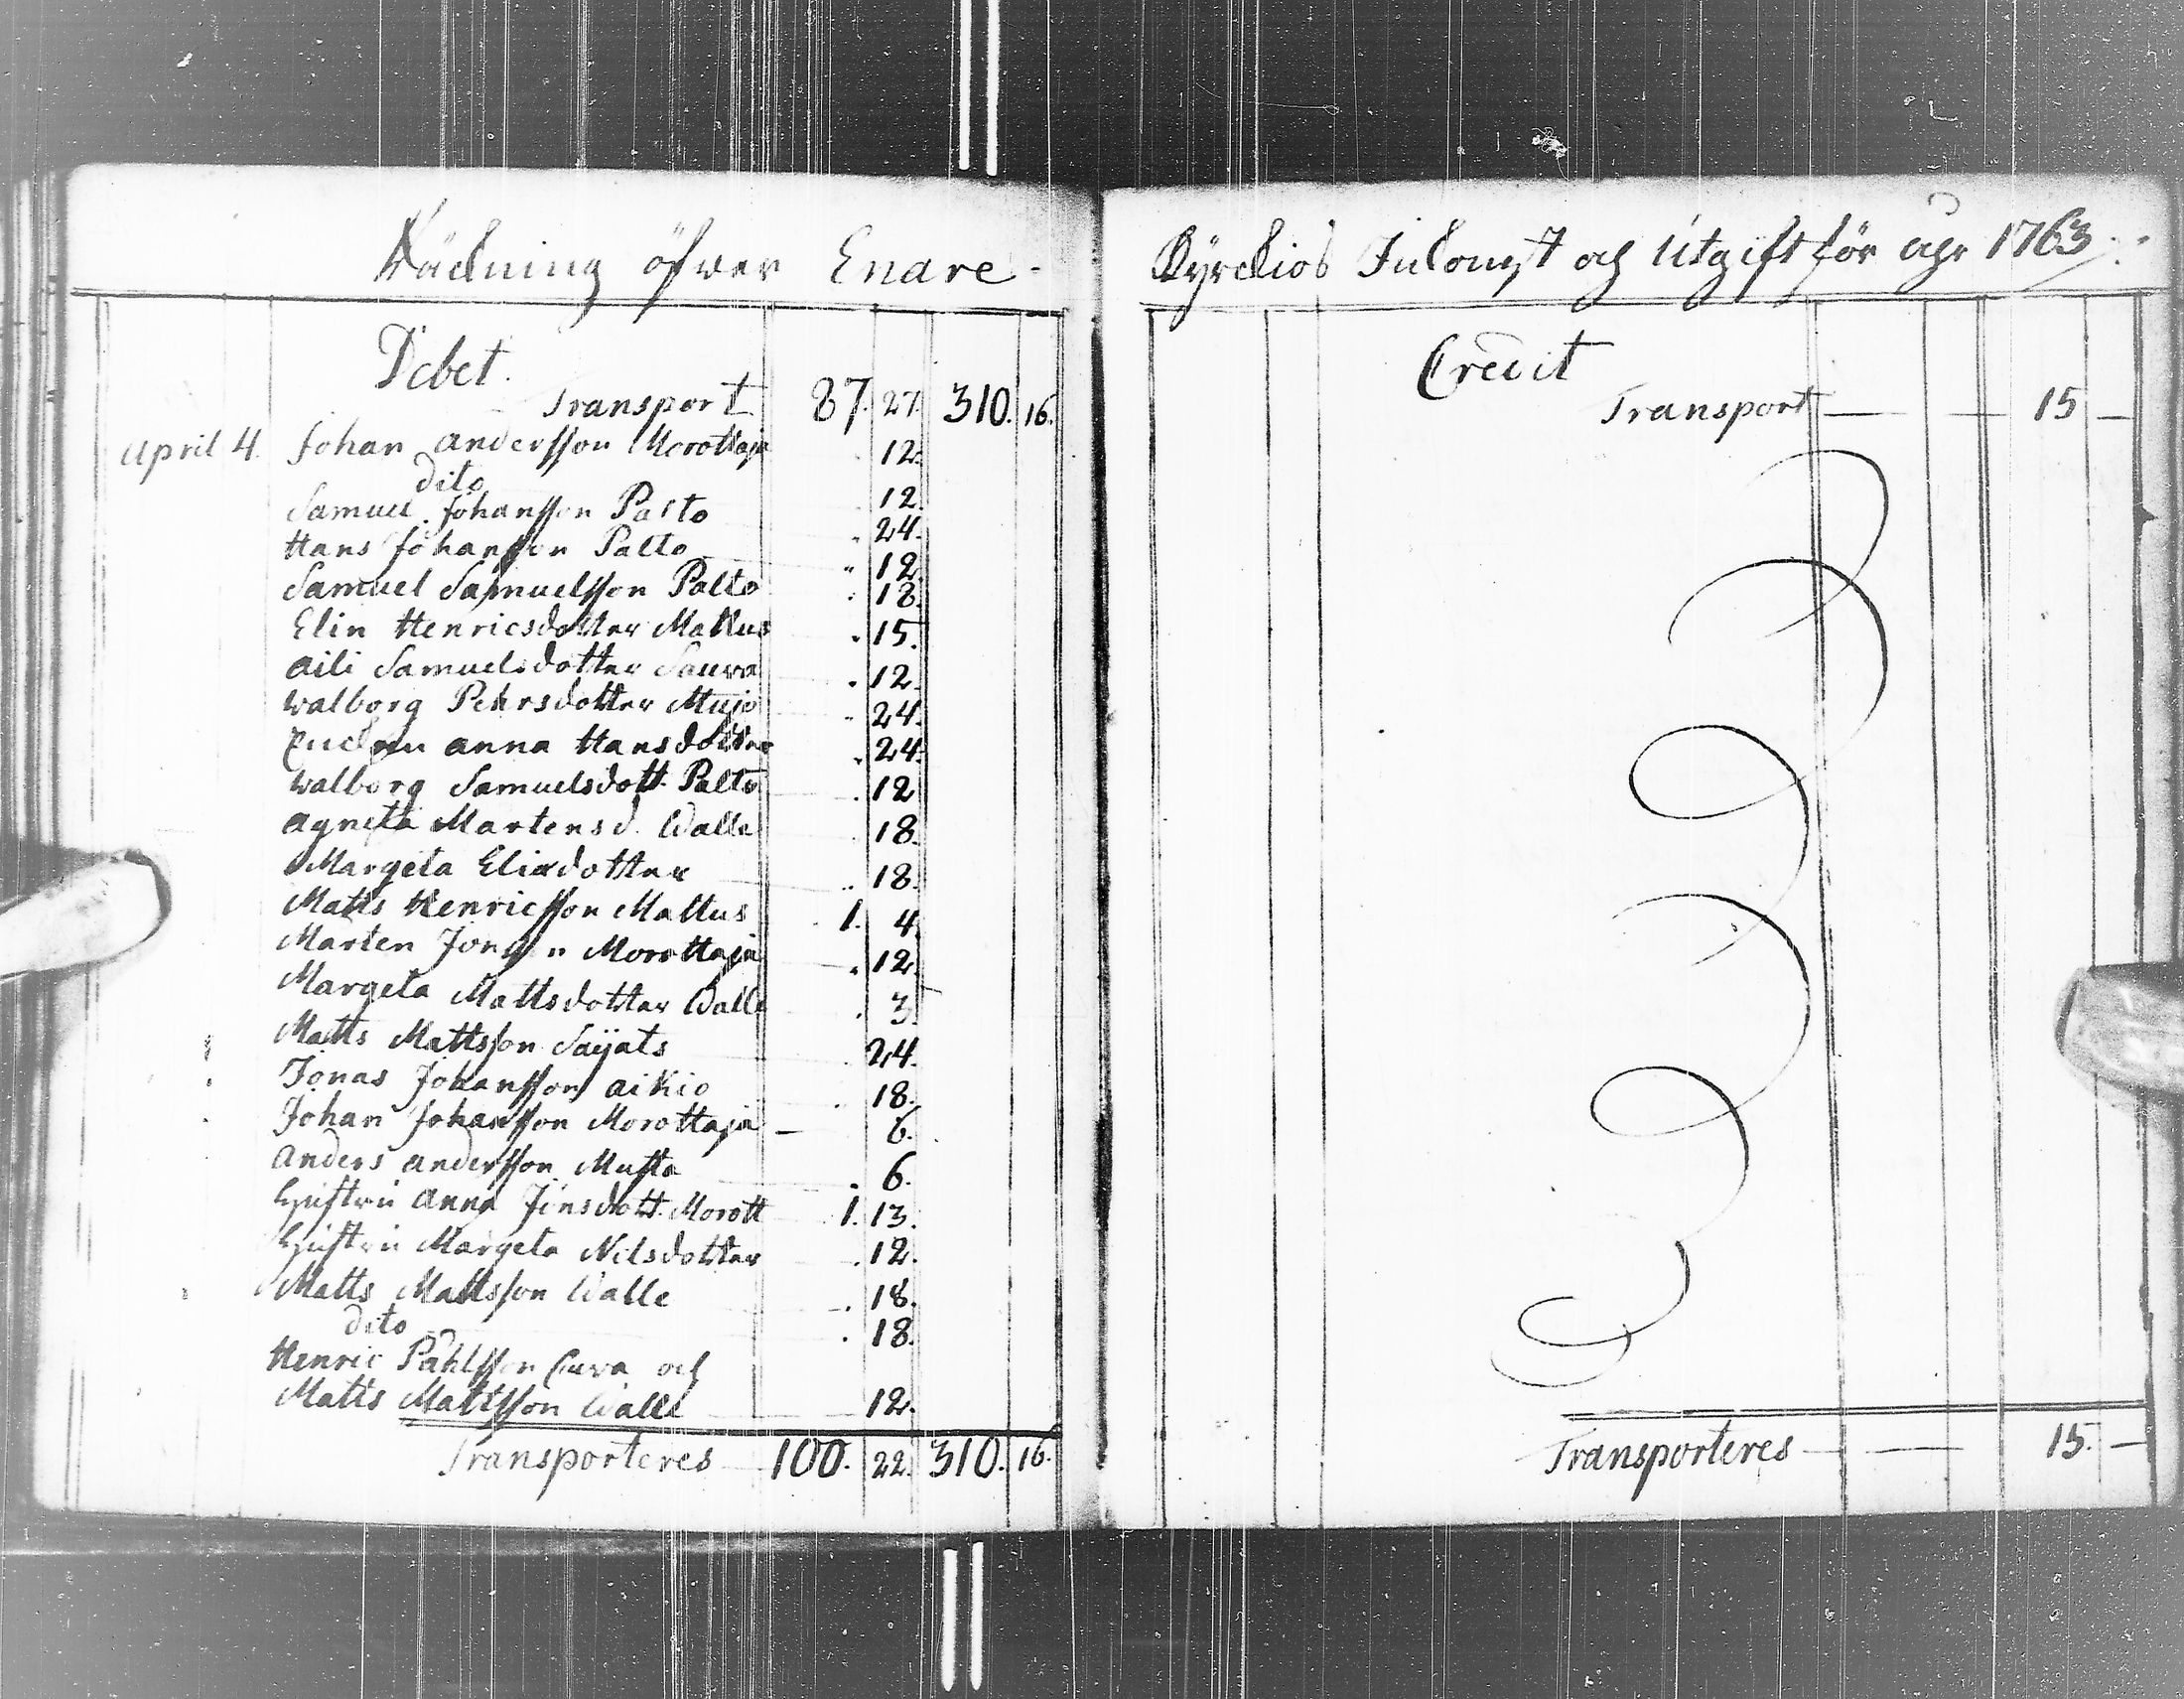 Räckning öfwer Enare
Debet.
Transport 87. 27. 310. 16.
April 4. Johan Andersson Morottaja 12.
dito 12.
Samuel Johansson Palto 24.
Hans Johansson Palto 12.
Samuel Samuelsson Palto 18.
Elin Henricsdotter Mattus 15.
Aili Samuelsdotter Sauva 12.
Walborg Pehrsdotter Mujo 24.
Anna Hansdotter 24.
Walborg Samuelsdott. Palto 12
Agneta Martensd. Walle 18.
Margeta Eliædotter 18.
Matts Henricsson Mattus 1. 4.
Marten Morottaja 12.
Margeta Mattsdotter Walle 3.
Matts Mattsson Saijats 24.
Jonas Johansson Aikio 18.
Johan Johansson Morottaja — 6.
Anders Andersson Musta 6.
Hustru Anna Jönsdott. Morott 1. 13.
Hustru Margeta Nilsdotter 12.
Matts Mattsson Walle 18.
dito 18.
Henric Påhlsson Cuva och
Matts Mattsson Walle 12.
Transporteres 100. 22. 310. 16.
Kyrckios Inkomst och Utgift för åhr 1763.
Credit
Transport — — 15 —
Transporteres — — 15. —